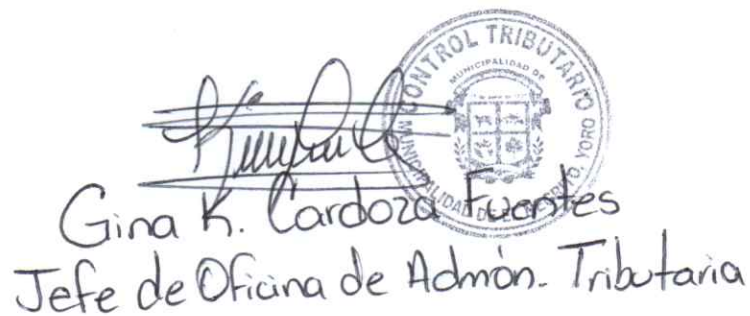 CONTROL TRIBUTARIO
MUNICIPALIDAD DE
MUNICIPALIDAD DE YORO
Gina K. Cardoza Fuentes
Jefe de Oficina de Admón. Tributaria